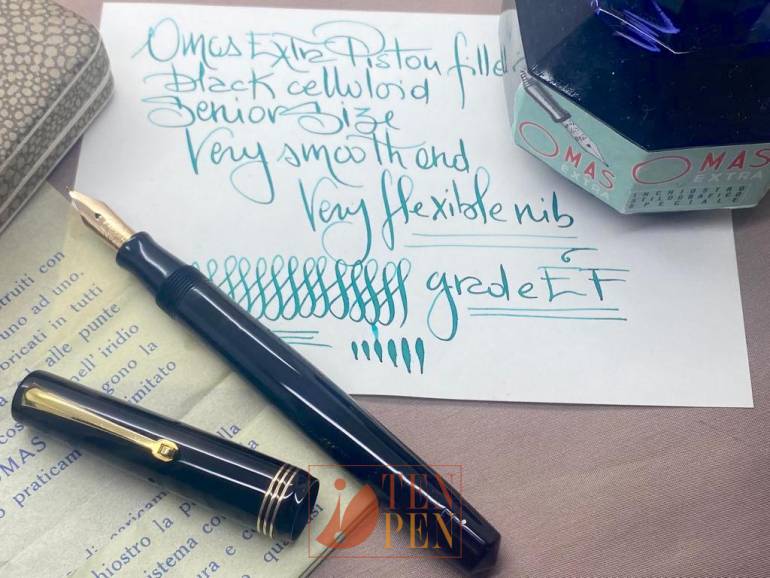 Omas Extra Piston filled
Black celluloid
Senior Size
Very smooth and
Very flexible nib
grade EF
OMAS
EXTRA
INCHIOSTRO
STILOGRAFICO
SPECIALE
OMAS
EXTRA
struiti con
uno ad uno.
oricati in tutti
alle punte
nell' iridio
gono la
limitato
OMAS
praticam
la
di
hiostro la p
istema co
ura e c
qu
si
TEN
PEN